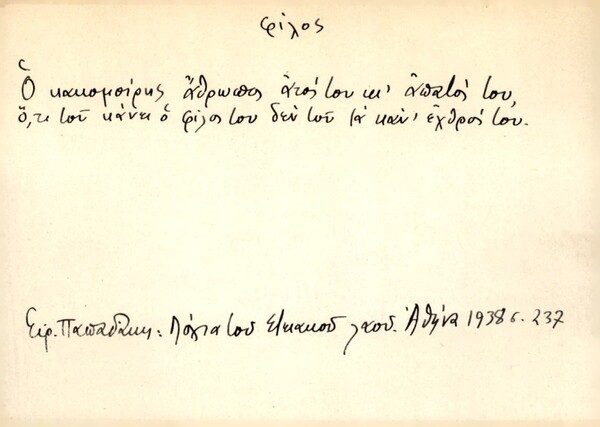 φίλος
Ὁ κακομοίρης ἄθρωπος ἀτός του κι' ἀπατός του,
ὅ,τι τοῦ κάνει ὁ φίλος του δὲν τοῦ τὸ κάν' ἐχθρός του.
Εἰρ. Παπαδάκη: Λόγια τοῦ Στειακοῦ λαοῦ. Ἀθήνα 1938 σ. 237